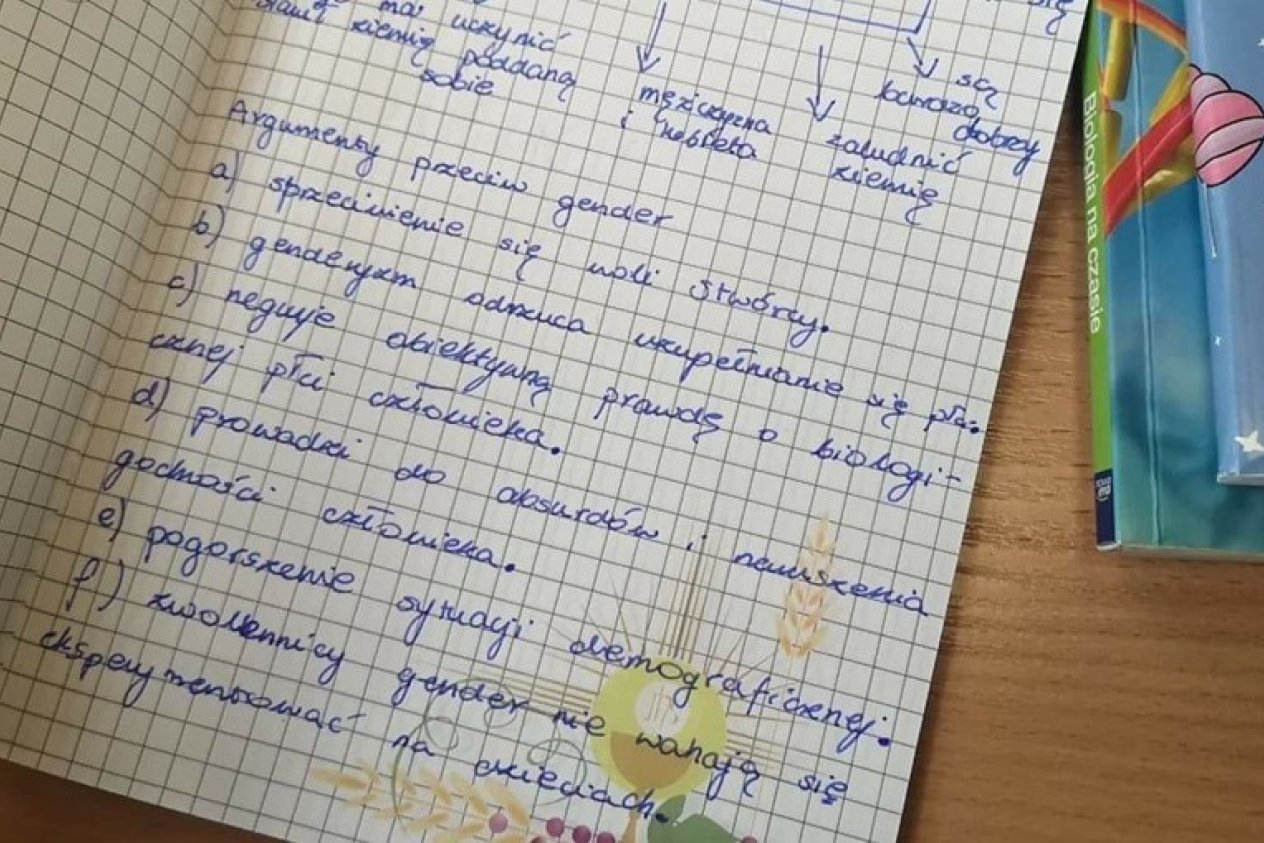 się
ma uczynić
ziemię poddaną
sobie
mężczyzna
i kobieta
zaludnić
ziemię
są
bardzo
dobrzy
Argumenty przeciw gender
a) sprzeciwienie się woli Stwórcy.
b) genderyzm odrzuca uzupełnianie się płci.
c) neguje obiektywną prawdę o biologi-
cznej płci człowieka.
d) prowadzi do absurdów i naruszenia
godności człowieka.
e) pogorszenie sytuacji demograficznej.
f) zwolennicy gender nie wahają się
eksperymentować na dzieciach.
Biologia na czasie